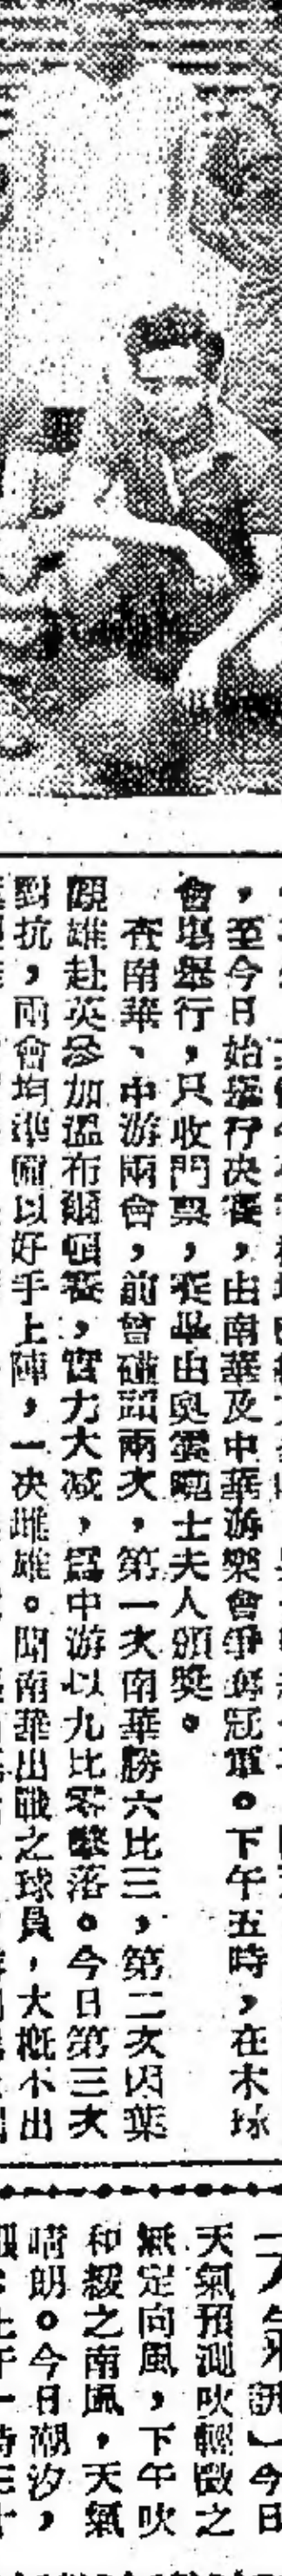 ，至今日始舉行决賽，由南華及中華游樂會爭奪冠軍。下午五時，在木球
會塲舉行，只收門票，賽畢由奧雲曉士夫人頒獎。
查南華、中游兩會，前曾碰頭兩次，第一次南華勝六比三，第二次因葉
觀雄赴英參加溫布爾頓賽，實力大减，爲中游以九比零擊落。今日第三次
對抗，兩會均準備以好手上陣，一决雌雄。聞南華出戰之球員，大槪不出
天氣訊】今日
天氣預測吹輕微之
無定向風，下午吹
和緩之南風，天氣
晴朗。今日潮汐，
上午一時